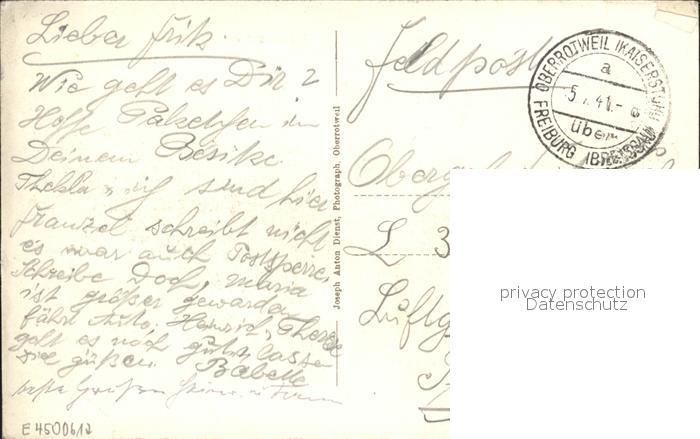 Lieber Fritz.
Wie geht es Dir?
Hoffe Paketchen in
Deinem Besitze
Thekla u. ich sind hier
Franzel schreibt nicht
es war auch Postsperre.
Schreibe Doch, Maria
ist größer geworden
fährt Auto. Heinrich u. Therese
geht es noch gut, lassen
Dich grüßen. Babette
beste Grüßen
E4500612
Joseph Anton Dienst, Photograph, Oberrotweil
Feldpost
OBERROTWEIL (KAISERSTUHL)
a
5. .41.-
über
FREIBURG (BREISGAU)
L 3
privacy protection
Datenschutz